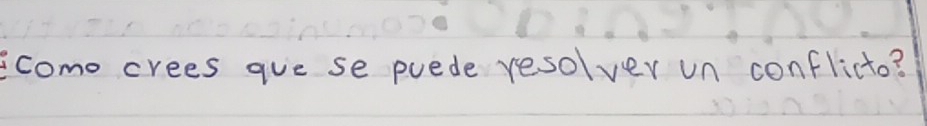 ¿como crees que se puede resolver un conflicto?